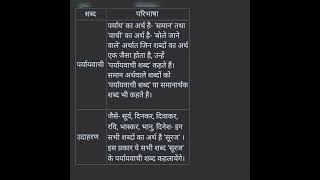 शब्द परिभाषा
पर्याय' का अर्थ है- 'समान' तथा
'वाची' का अर्थ है- 'बोले जाने
वाले' अर्थात जिन शब्दों का अर्थ
एक जैसा होता है, उन्हें
पर्यायवाची 'पर्यायवाची शब्द' कहते हैं।
समान अर्थवाले शब्दों को
'पर्यायवाची शब्द' या समानार्थक
शब्द भी कहते है।
जैसे- सूर्य, दिनकर, दिवाकर,
रवि, भास्कर, भानु, दिनेश- इन
उदाहरण सभी शब्दों का अर्थ है 'सूरज' ।
इस प्रकार ये सभी शब्द 'सूरज'
के पर्यायवाची शब्द कहलायेंगे।